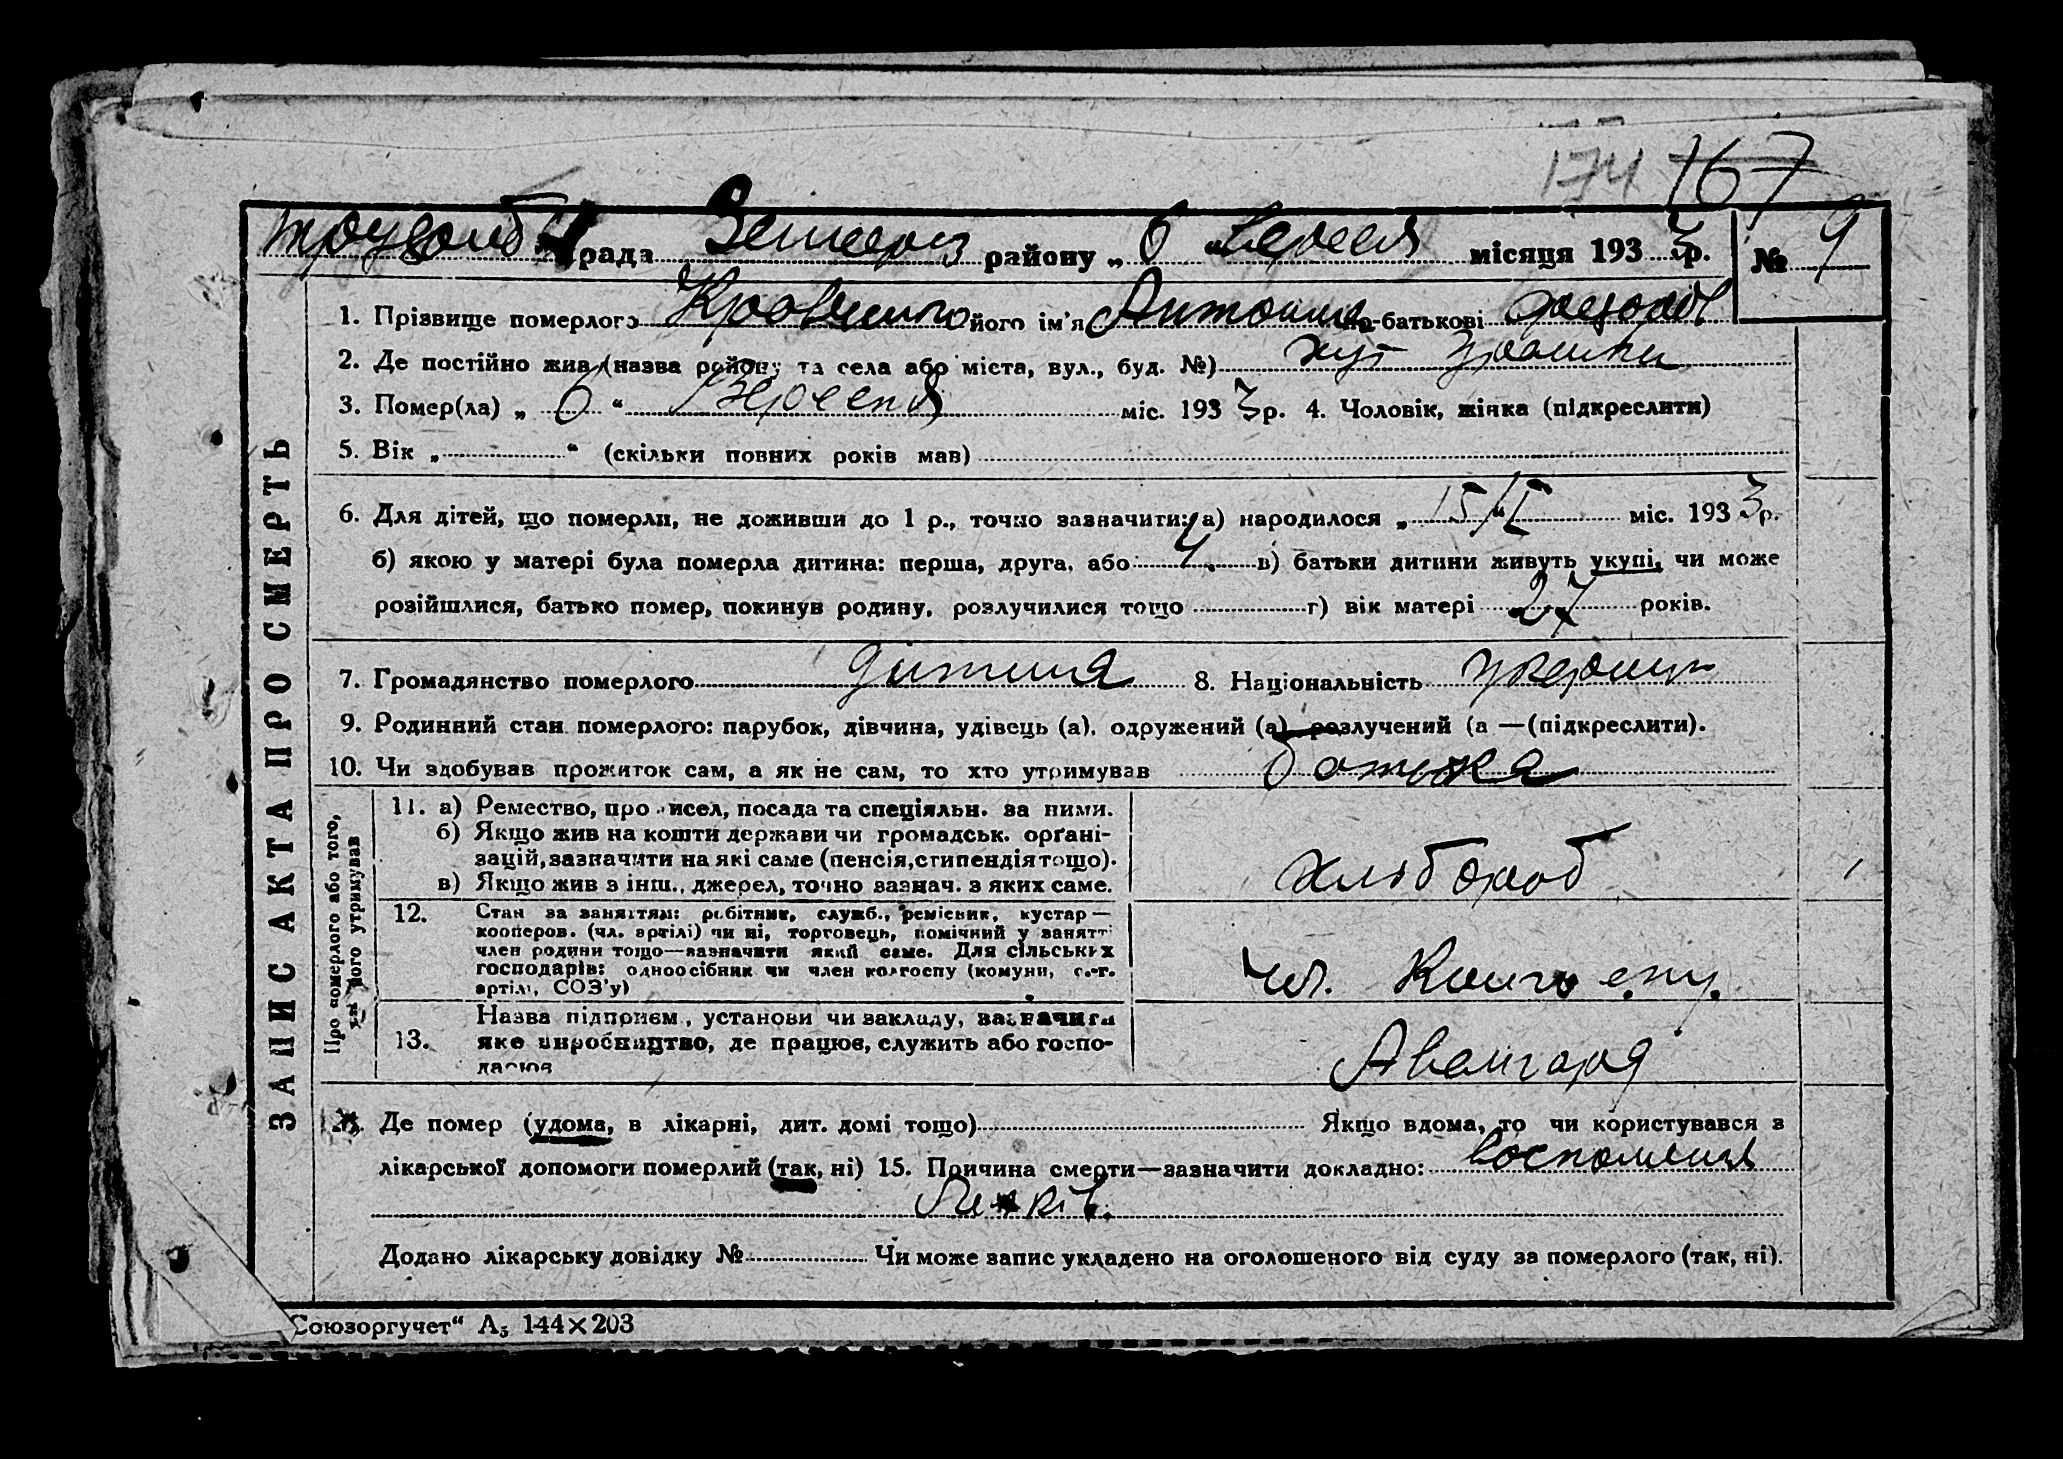 174 167
рада району „ 6 місяця 1933 р. № 9
1. Прізвище померлого Кравченко його ім'я Антонина по-батькові
2. Де постійно жив (назва району та села або міста, вул., буд. №) хут
3. Помер(ла) „ 6 “ Вересня міс. 1933 р. 4. Чоловік, жінка (підкреслити)
5. Вік „ “ (скільки повних років мав)
6. Для дітей, що померли, не доживши до 1 р., точно зазначити: а) народилося „ 15/“І міс. 1933 р.
б) якою у матері була померла дитина: перша, друга, або 4 в) батьки дитини живуть укупі, чи може
розійшлися, батько помер, покинув родину, розлучилися тощо г) вік матері 27 років.
7. Громадянство померлого дитина 8. Національність
9. Родинний стан померлого: парубок, дівчина, удівець (а), одружений (а) розлучений (а —(підкреслити).
10. Чи здобував прожиток сам, а як не сам, то хто утримував
ЗАПИС АКТА ПРО СМЕРТЬ
Про померлого або того, як його утримував
11. а) Ремество, про исел, посада та спеціяльн. за ними.
б) Якщо жив на кошти держави чи громадськ. орґані-
зацій, зазначити на які саме (пенсія, стипендія тощо).
в) Якщо жив з інш., джерел, точно зазнач. з яких саме.
хлібороб
12. Стан за заняттям: робітник, служб., ремісник, кустар —
кооперов. (чл. артілі) чи ні, торговець, помічний у занятт
член родини тощо—зазначити який саме. Для сільських
господарів: одноосібник чи член колгоспу (комуни, с.-г.
артілі, СОЗ'у)
чл.
13. Назва підприєм., установи чи закладу, зазначити
яке виробництво, де працює, служить або госпо-
дарює
Авангард
Де помер (удома, в лікарні, дит. домі тощо) Якщо вдома, то чи користувався з
лікарської допомоги померлий (так, ні) 15. Причина смерти—зазначити докладно:
Додано лікарську довідку № Чи може запис укладено на оголошеного від суду за померлого (так, ні).
Союзоргучет“ А₅ 144×203